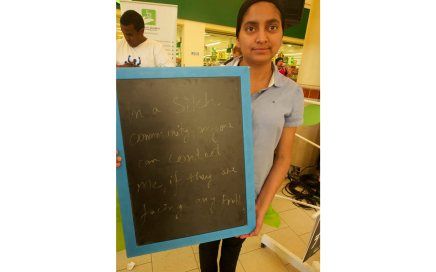 in a Sikh
community anyone
can contact
me, if they are
facing any